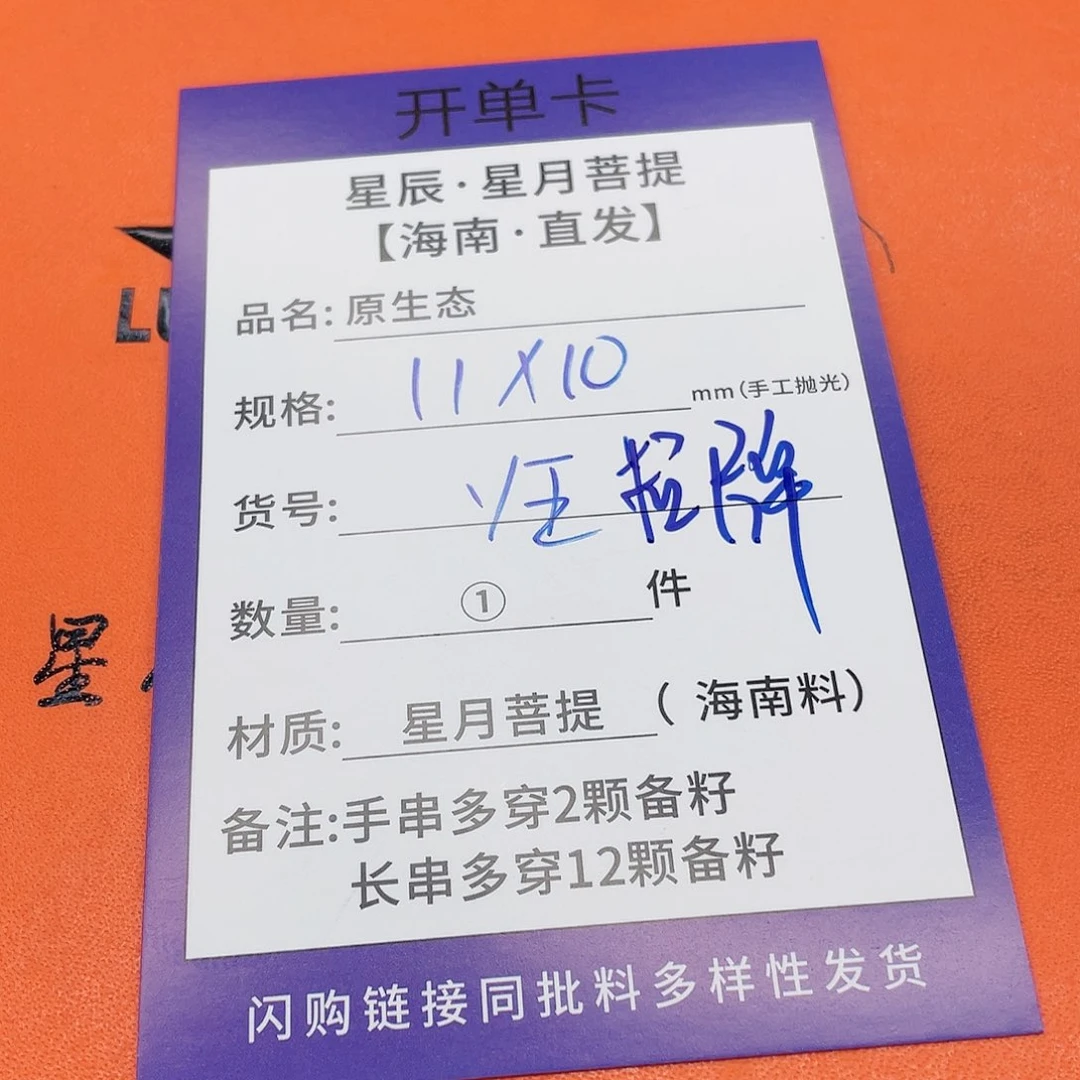 开单卡
星辰·星月菩提
【海南·直发】
品名: 原生态
规格: 11×10 mm(手工抛光)
货号:
数量: ① 件
材质: 星月菩提 ( 海南料)
备注:手串多穿2颗备籽
长串多穿12颗备籽
闪购链接同批料多样性发货
LU
星